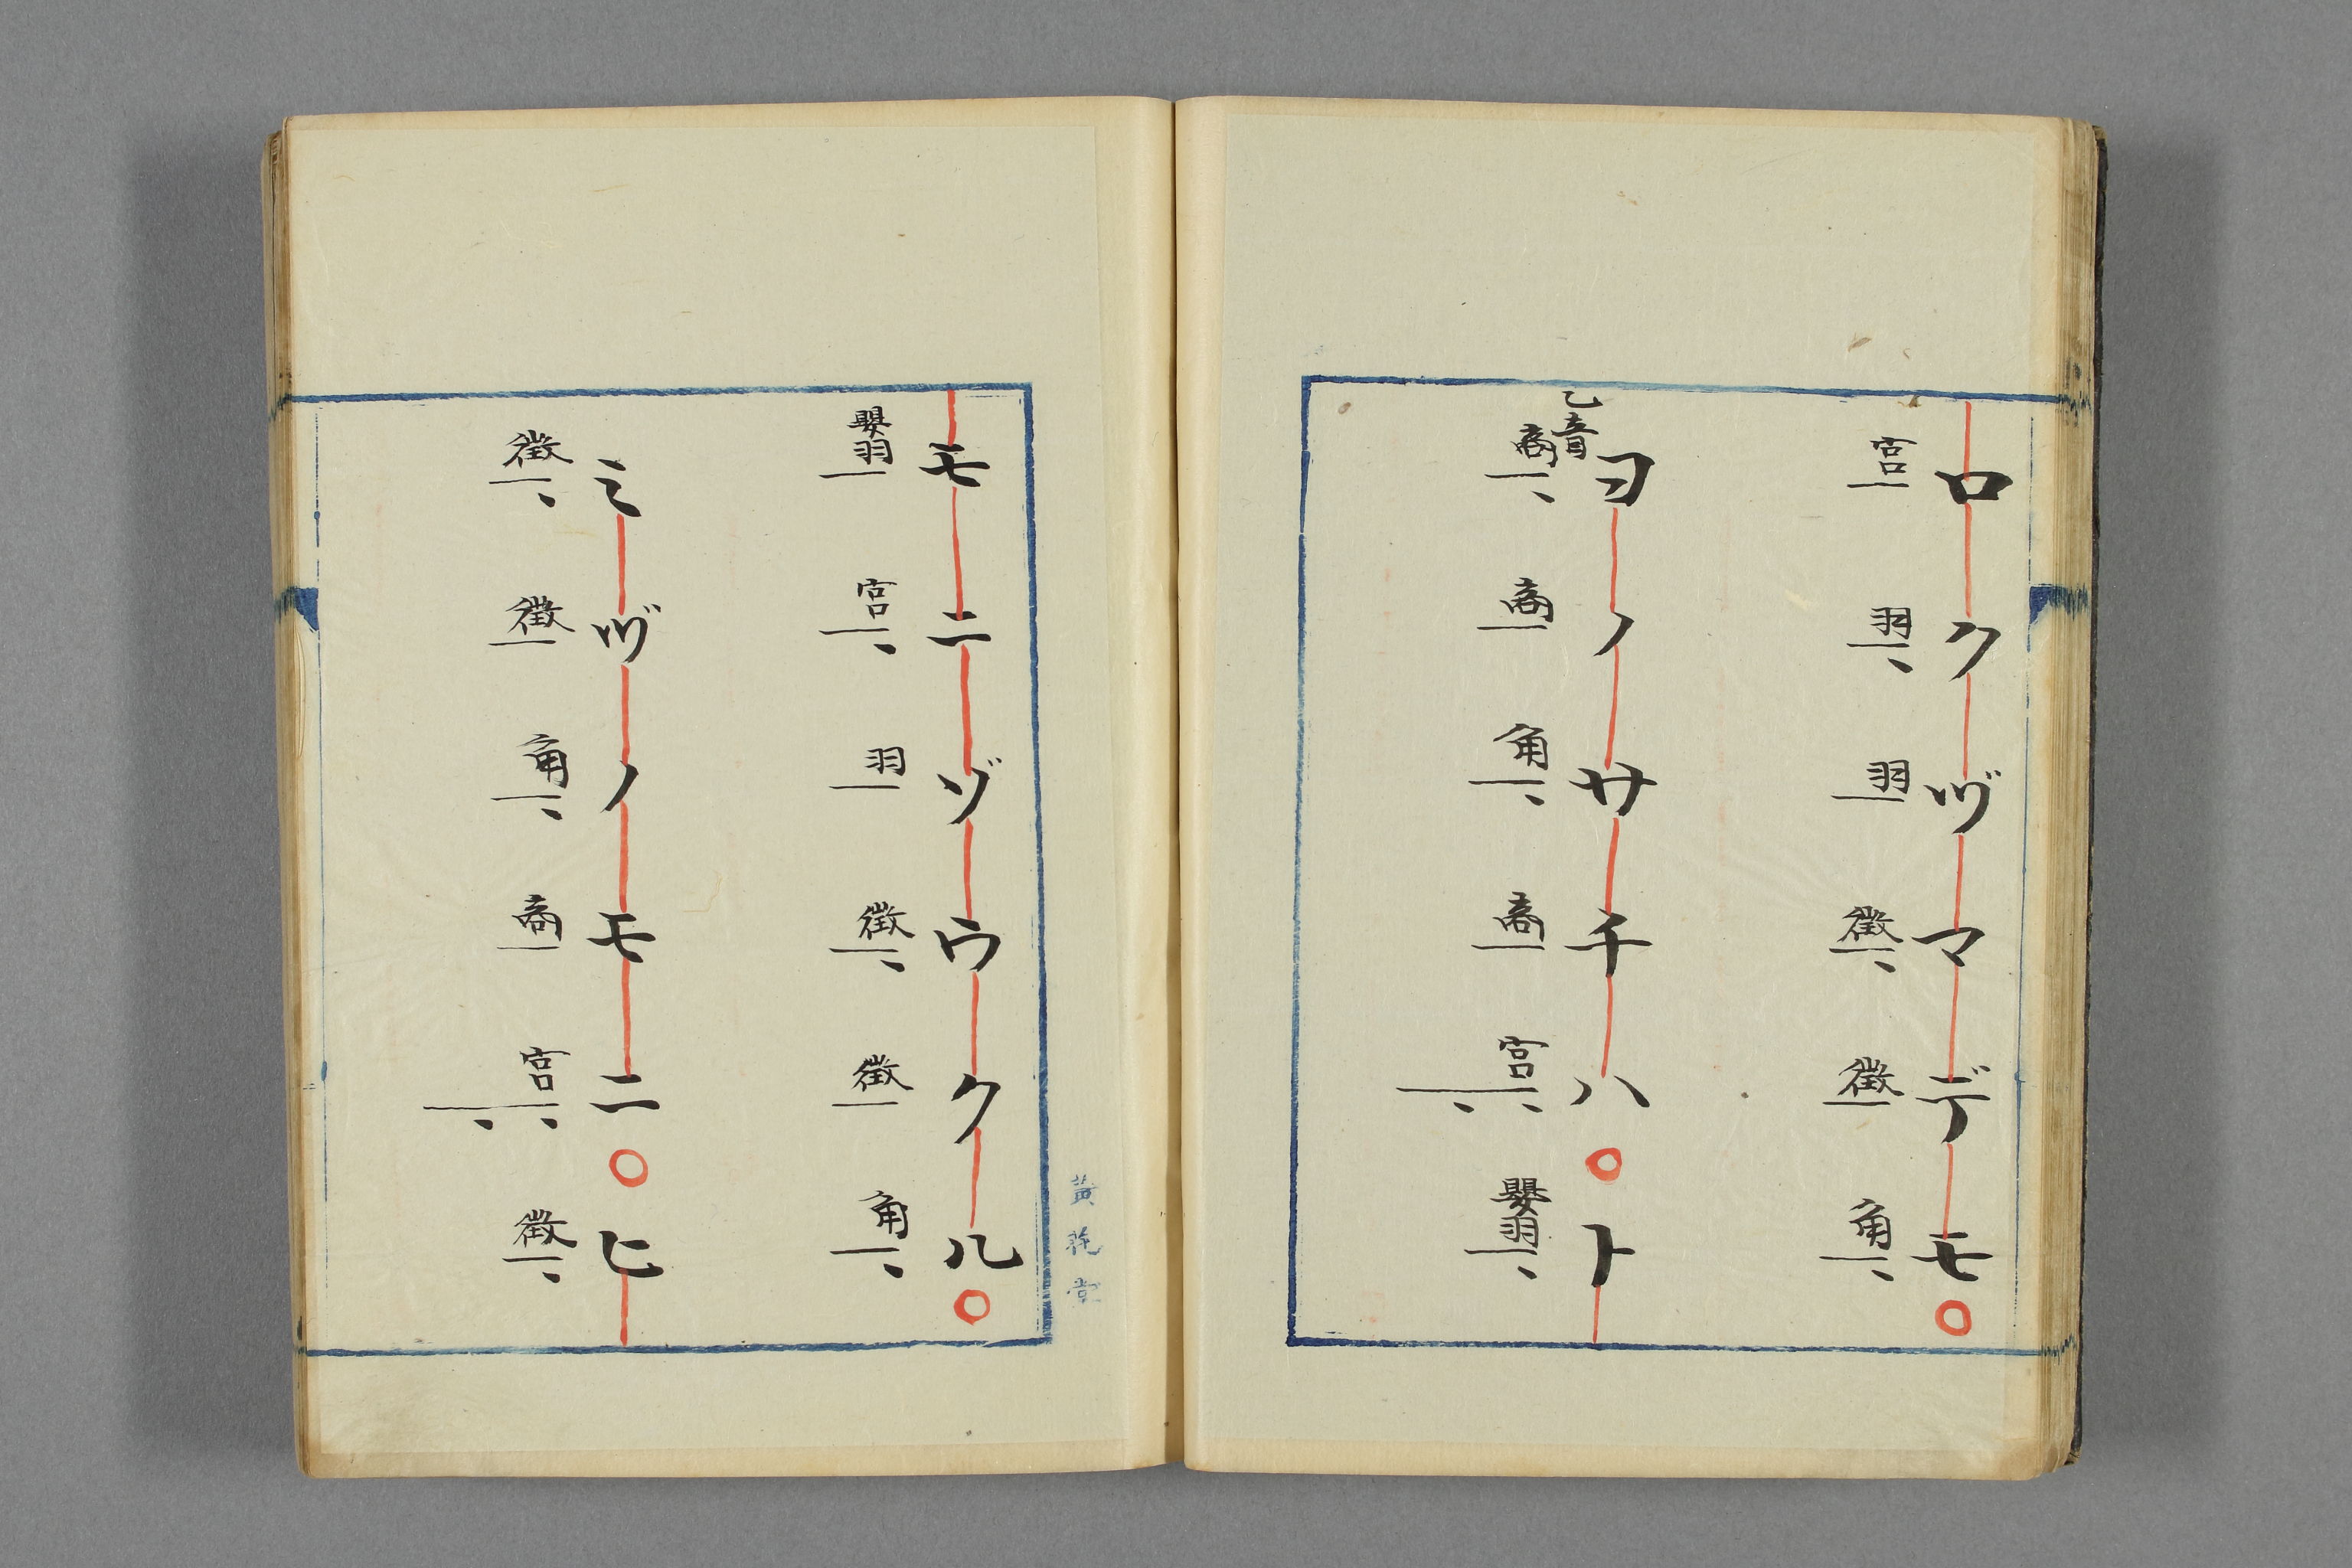 ロクヅマデモ○
宮 羽 羽 徴 徴 角
ヨノサチハ○ト
乙音
商 商 角 商 宮 嬰羽
モニゾウクル○
嬰羽 宮 羽 徴 徴 角
ミヅノモニ○ヒ
徴 徴 角 商 宮 徴